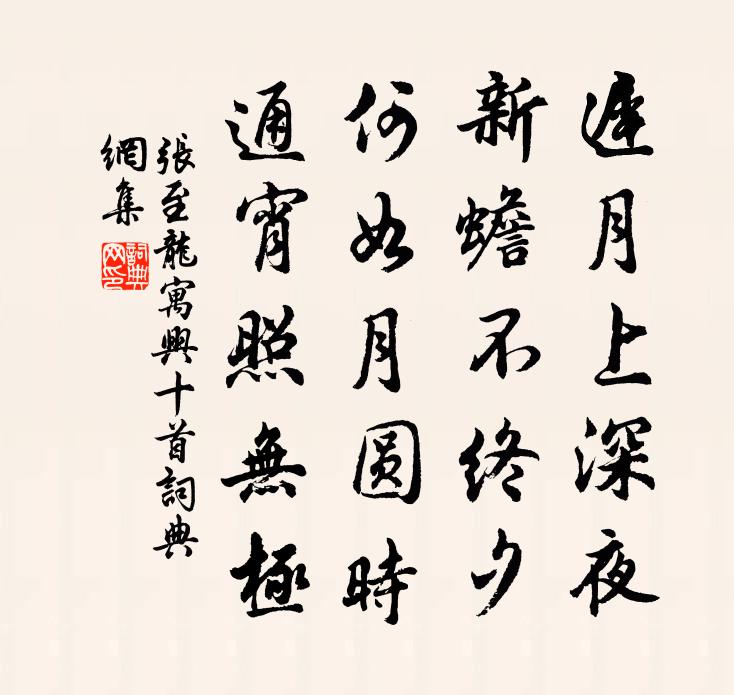 遲月上深夜
新蟾不終夕
何如月圓時
通宵照無極
張至龍寓興十首詞典
網集
詞典網印